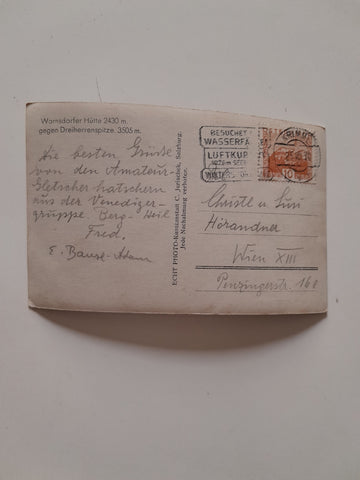 Warnsdorfer Hütte 2430 m.
gegen Dreiherrenspitze. 3505 m.
Die besten Grüße
von den Amateur-
Gletscher hatschern
aus der Venediger-
gruppe. Berg-Heil
Fred.
E.
ECHT PHOTO-Kunstanstalt C. Jurischek, Salzburg.
Jede Nachahmung verboten.
BESUCHET
WASSERF
LUFTKUR
10
Christl u Susi
Hörandner
Wien XIII
Penzingerstr. 168